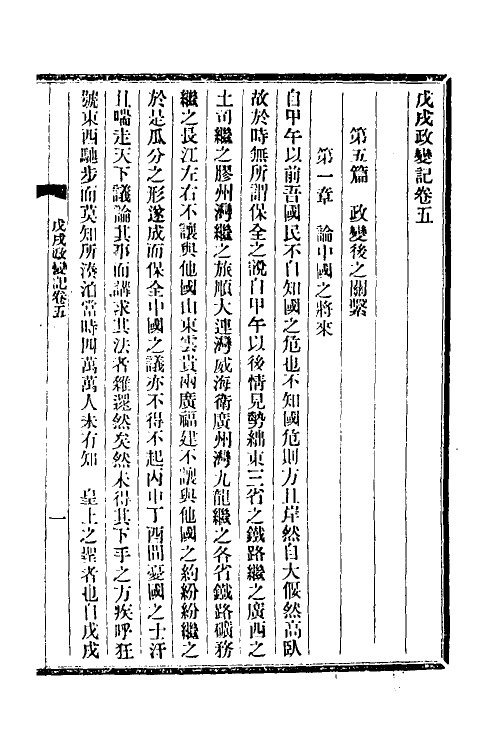 戊戌政變記卷五
第五篇　政變後之關繫
第一章　論中國之將來
自甲午以前吾國民不自知國之危也不知國危則方且岸然自大偃然高臥
故於時無所謂保全之說自甲午以後情見勢絀東三省之鐵路繼之廣西之
土司繼之膠州灣繼之旅順大連灣威海衛廣州灣九龍繼之各省鐵路礦務
繼之長江左右不讓與他國山東雲貴兩廣福建不讓與他國之約紛紛繼之
於是瓜分之形遂成而保全中國之議亦不得不起丙申丁酉間憂國之士汗
且喘走天下議論其事而講求其法者雜遝然矣然未得其下手之方疾呼狂
號東西馳步而莫知所湊泊當時四萬萬人未有知　皇上之聖者也自戊戌
戊戌政變記卷五
一